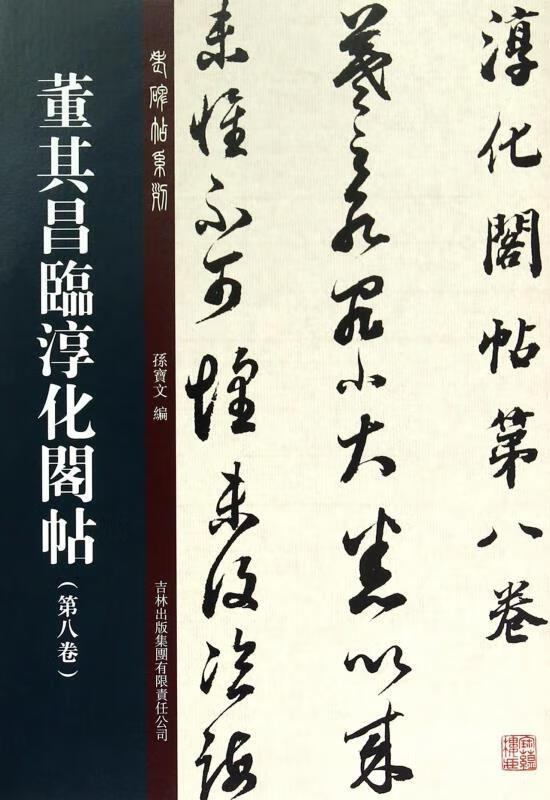 董其昌臨淳化閣帖
(第八卷)
老碑帖系列
孫寶文 編
吉林出版集團有限責任公司
淳化閣帖第八卷
羲之死罪小大悉以來
未 不可 未復